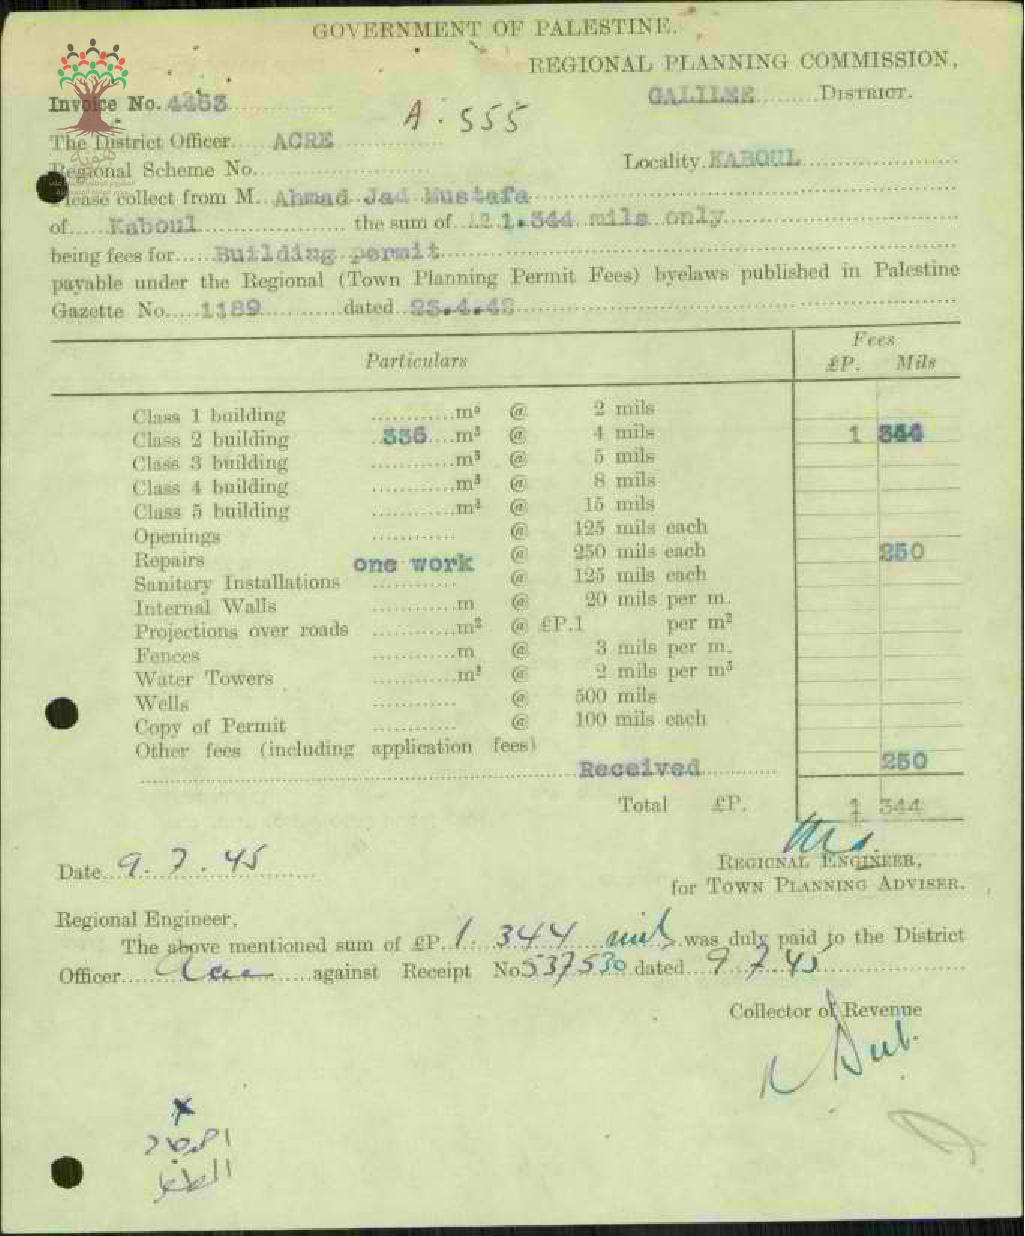 GOVERNMENT OF PALESTINE.
REGIONAL PLANNING COMMISSION,
Invoice No. 4453
GALILEE DISTRICT.
A. 555
The District Officer ACRE
Regional Scheme No.
Locality. KABOUL
Please collect from M. Ahmad Jad Mustafa
of Kaboul the sum of 1.344 mils only
being fees for Building permit
payable under the Regional (Town Planning Permit Fees) byelaws published in Palestine
Gazette No. 1189 dated 23.4.42
Particulars
Fees
£P. Mils
Class 1 building m³ @ 2 mils
Class 2 building 336 m³ @ 4 mils 1 344
Class 3 building m³ @ 5 mils
Class 4 building m³ @ 8 mils
Class 5 building m³ @ 15 mils
Openings @ 125 mils each
Repairs one work @ 250 mils each 250
Sanitary Installations @ 125 mils each
Internal Walls m @ 20 mils per m.
Projections over roads m² @ £P.1 per m²
Fences m @ 3 mils per m.
Water Towers m³ @ 2 mils per m³
Wells @ 500 mils
Copy of Permit @ 100 mils each
Other fees (including application fees)
Received 250
Total £P. 1 344
Date 9.7.45
REGIONAL ENGINEER,
for TOWN PLANNING ADVISER.
Regional Engineer,
The above mentioned sum of £P. 1. 344 mils was duly paid to the District
Officer Acre against Receipt No 537530 dated 9.7.45
Collector of Revenue